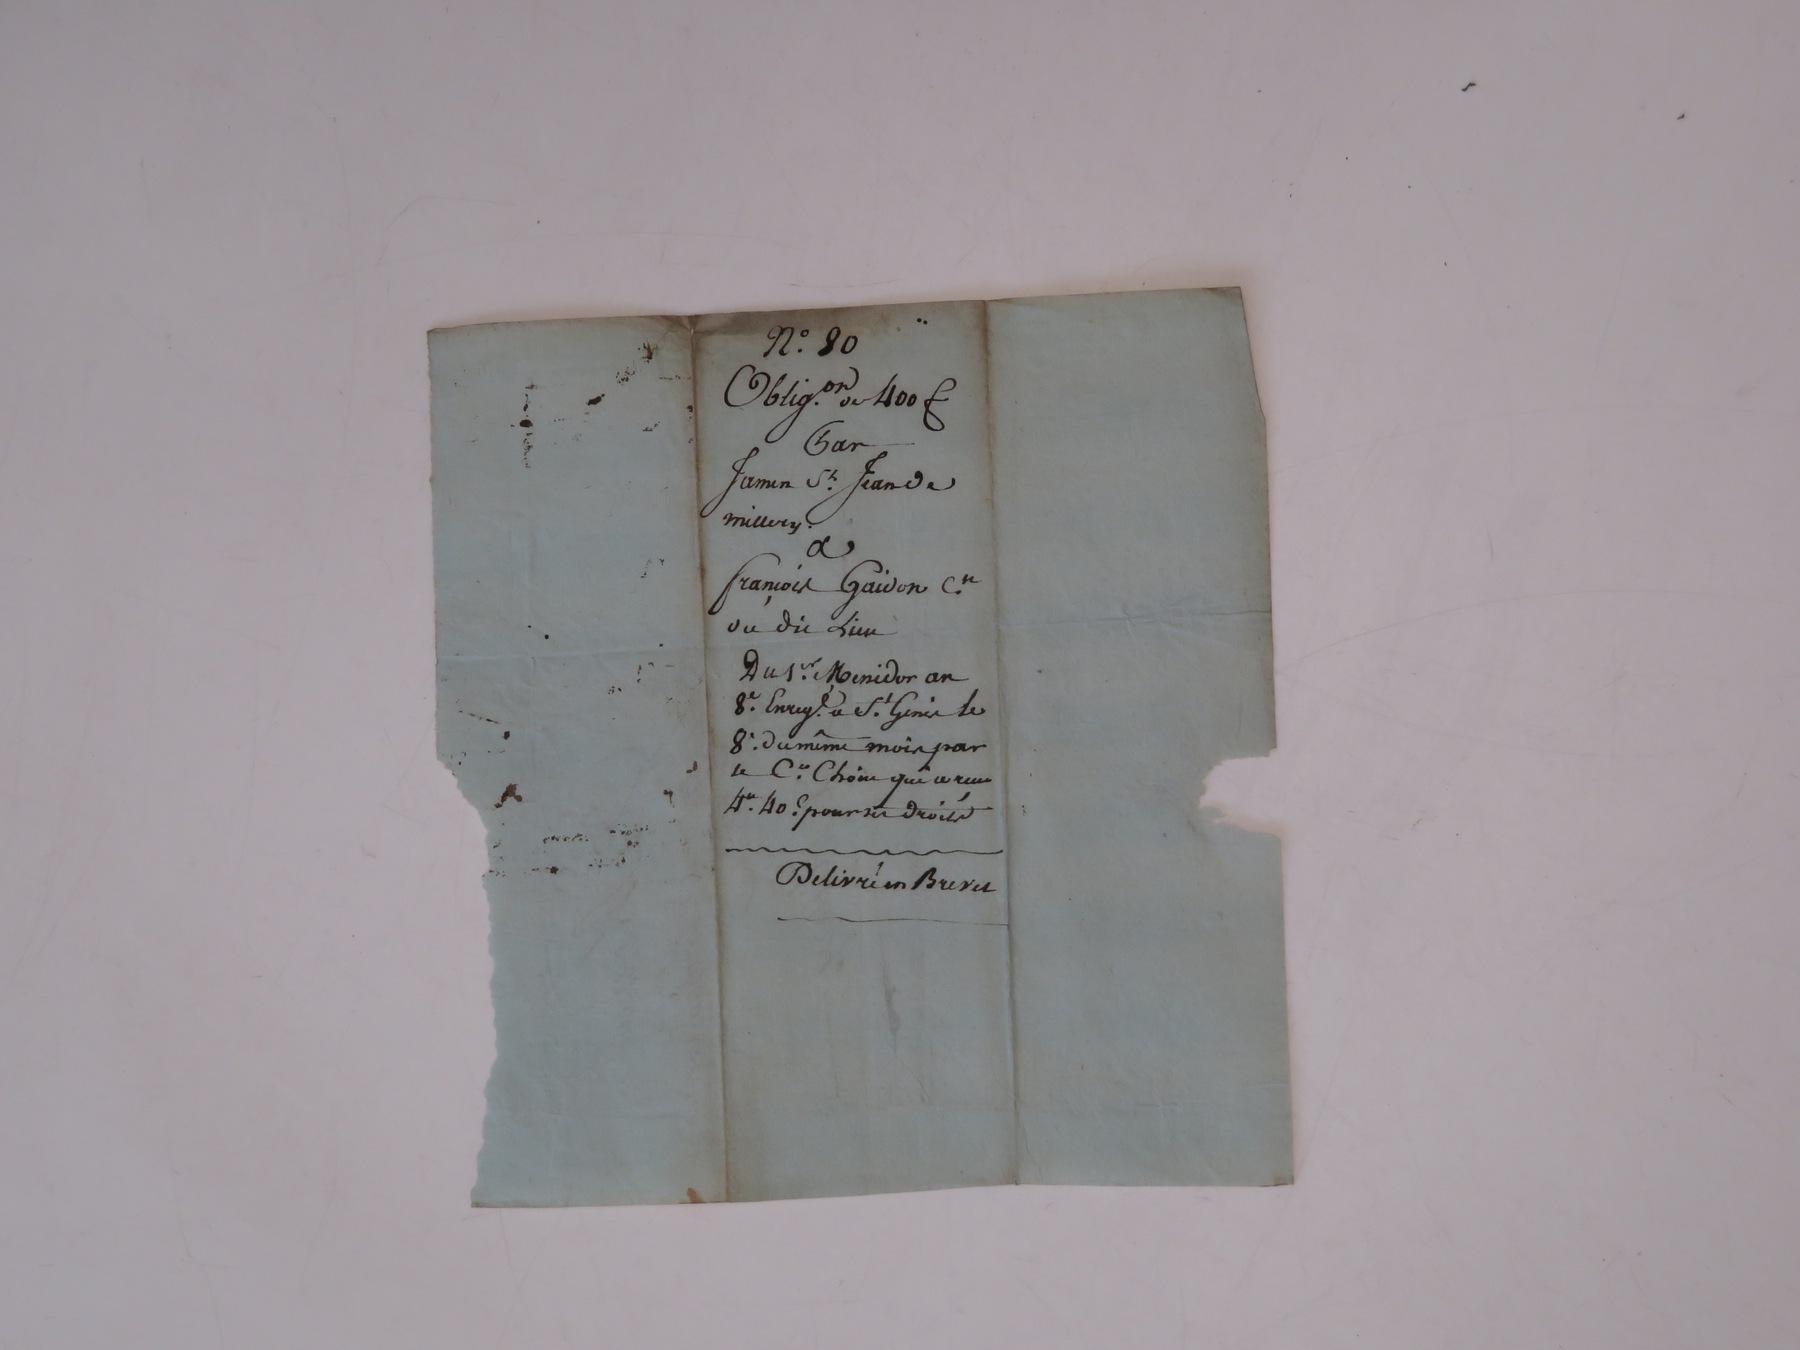 N.° 80
Oblig.on de 400 ₶
Par
Jamen St. Jean de
millery.
a
françois Gaidon C.en
du dit Lieu
Du 1.er Messidor an
8.e Enreg.é a St. Genis le
8.e du même mois par
le C.en Choine qui a recu
4.tt 40.c pour ses droits
Delivré en Brevet